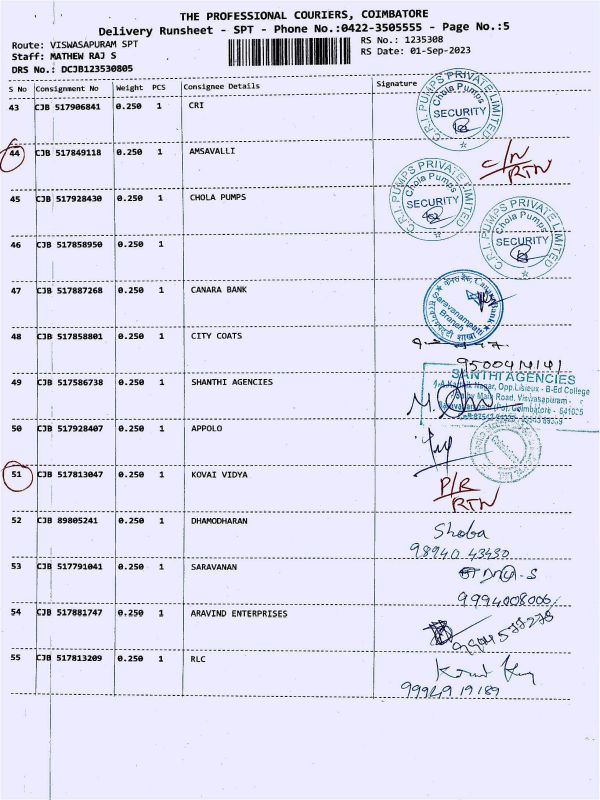 THE PROFESSIONAL COURIERS, COIMBATORE
Delivery Runsheet - SPT - Phone No.:0422-3505555 - Page No.:5
Route: VISWASAPURAM SPT
RS No.: 1235308
Staff: MATHEW RAJ S
RS Date: 01-Sep-2023
DRS No.: DCJB123530805
S No Consignment No Weight PCS Consignee Details Signature
43 CJB 517906841 0.250 1 CRI
C.R.I. PUMPS PRIVATE LIMITED
Chola Pumps
SECURITY
44 CJB 517849118 0.250 1 AMSAVALLI
C/N
RTN
45 CJB 517928430 0.250 1 CHOLA PUMPS
C.R.I. PUMPS PRIVATE LIMITED
Chola Pumps
SECURITY
46 CJB 517858950 0.250 1
C.R.I. PUMPS PRIVATE LIMITED
Chola Pumps
SECURITY
47 CJB 517887268 0.250 1 CANARA BANK
Saravanampatti
Branch
48 CJB 517858801 0.250 1 CITY COATS
49 CJB 517586738 0.250 1 SHANTHI AGENCIES
SANTHI AGENCIES
Nagar, Opp.Lisieux - B-Ed College
Main Road, Visvasapuram -
Coimbatore - 641035
50 CJB 517928407 0.250 1 APPOLO
51 CJB 517813047 0.250 1 KOVAI VIDYA
P/R
RTN
52 CJB 89805241 0.250 1 DHAMODHARAN
Shoba
98940 43430
53 CJB 517791041 0.250 1 SARAVANAN
9994008006
54 CJB 517881747 0.250 1 ARAVIND ENTERPRISES
55 CJB 517813209 0.250 1 RLC
99949 19189